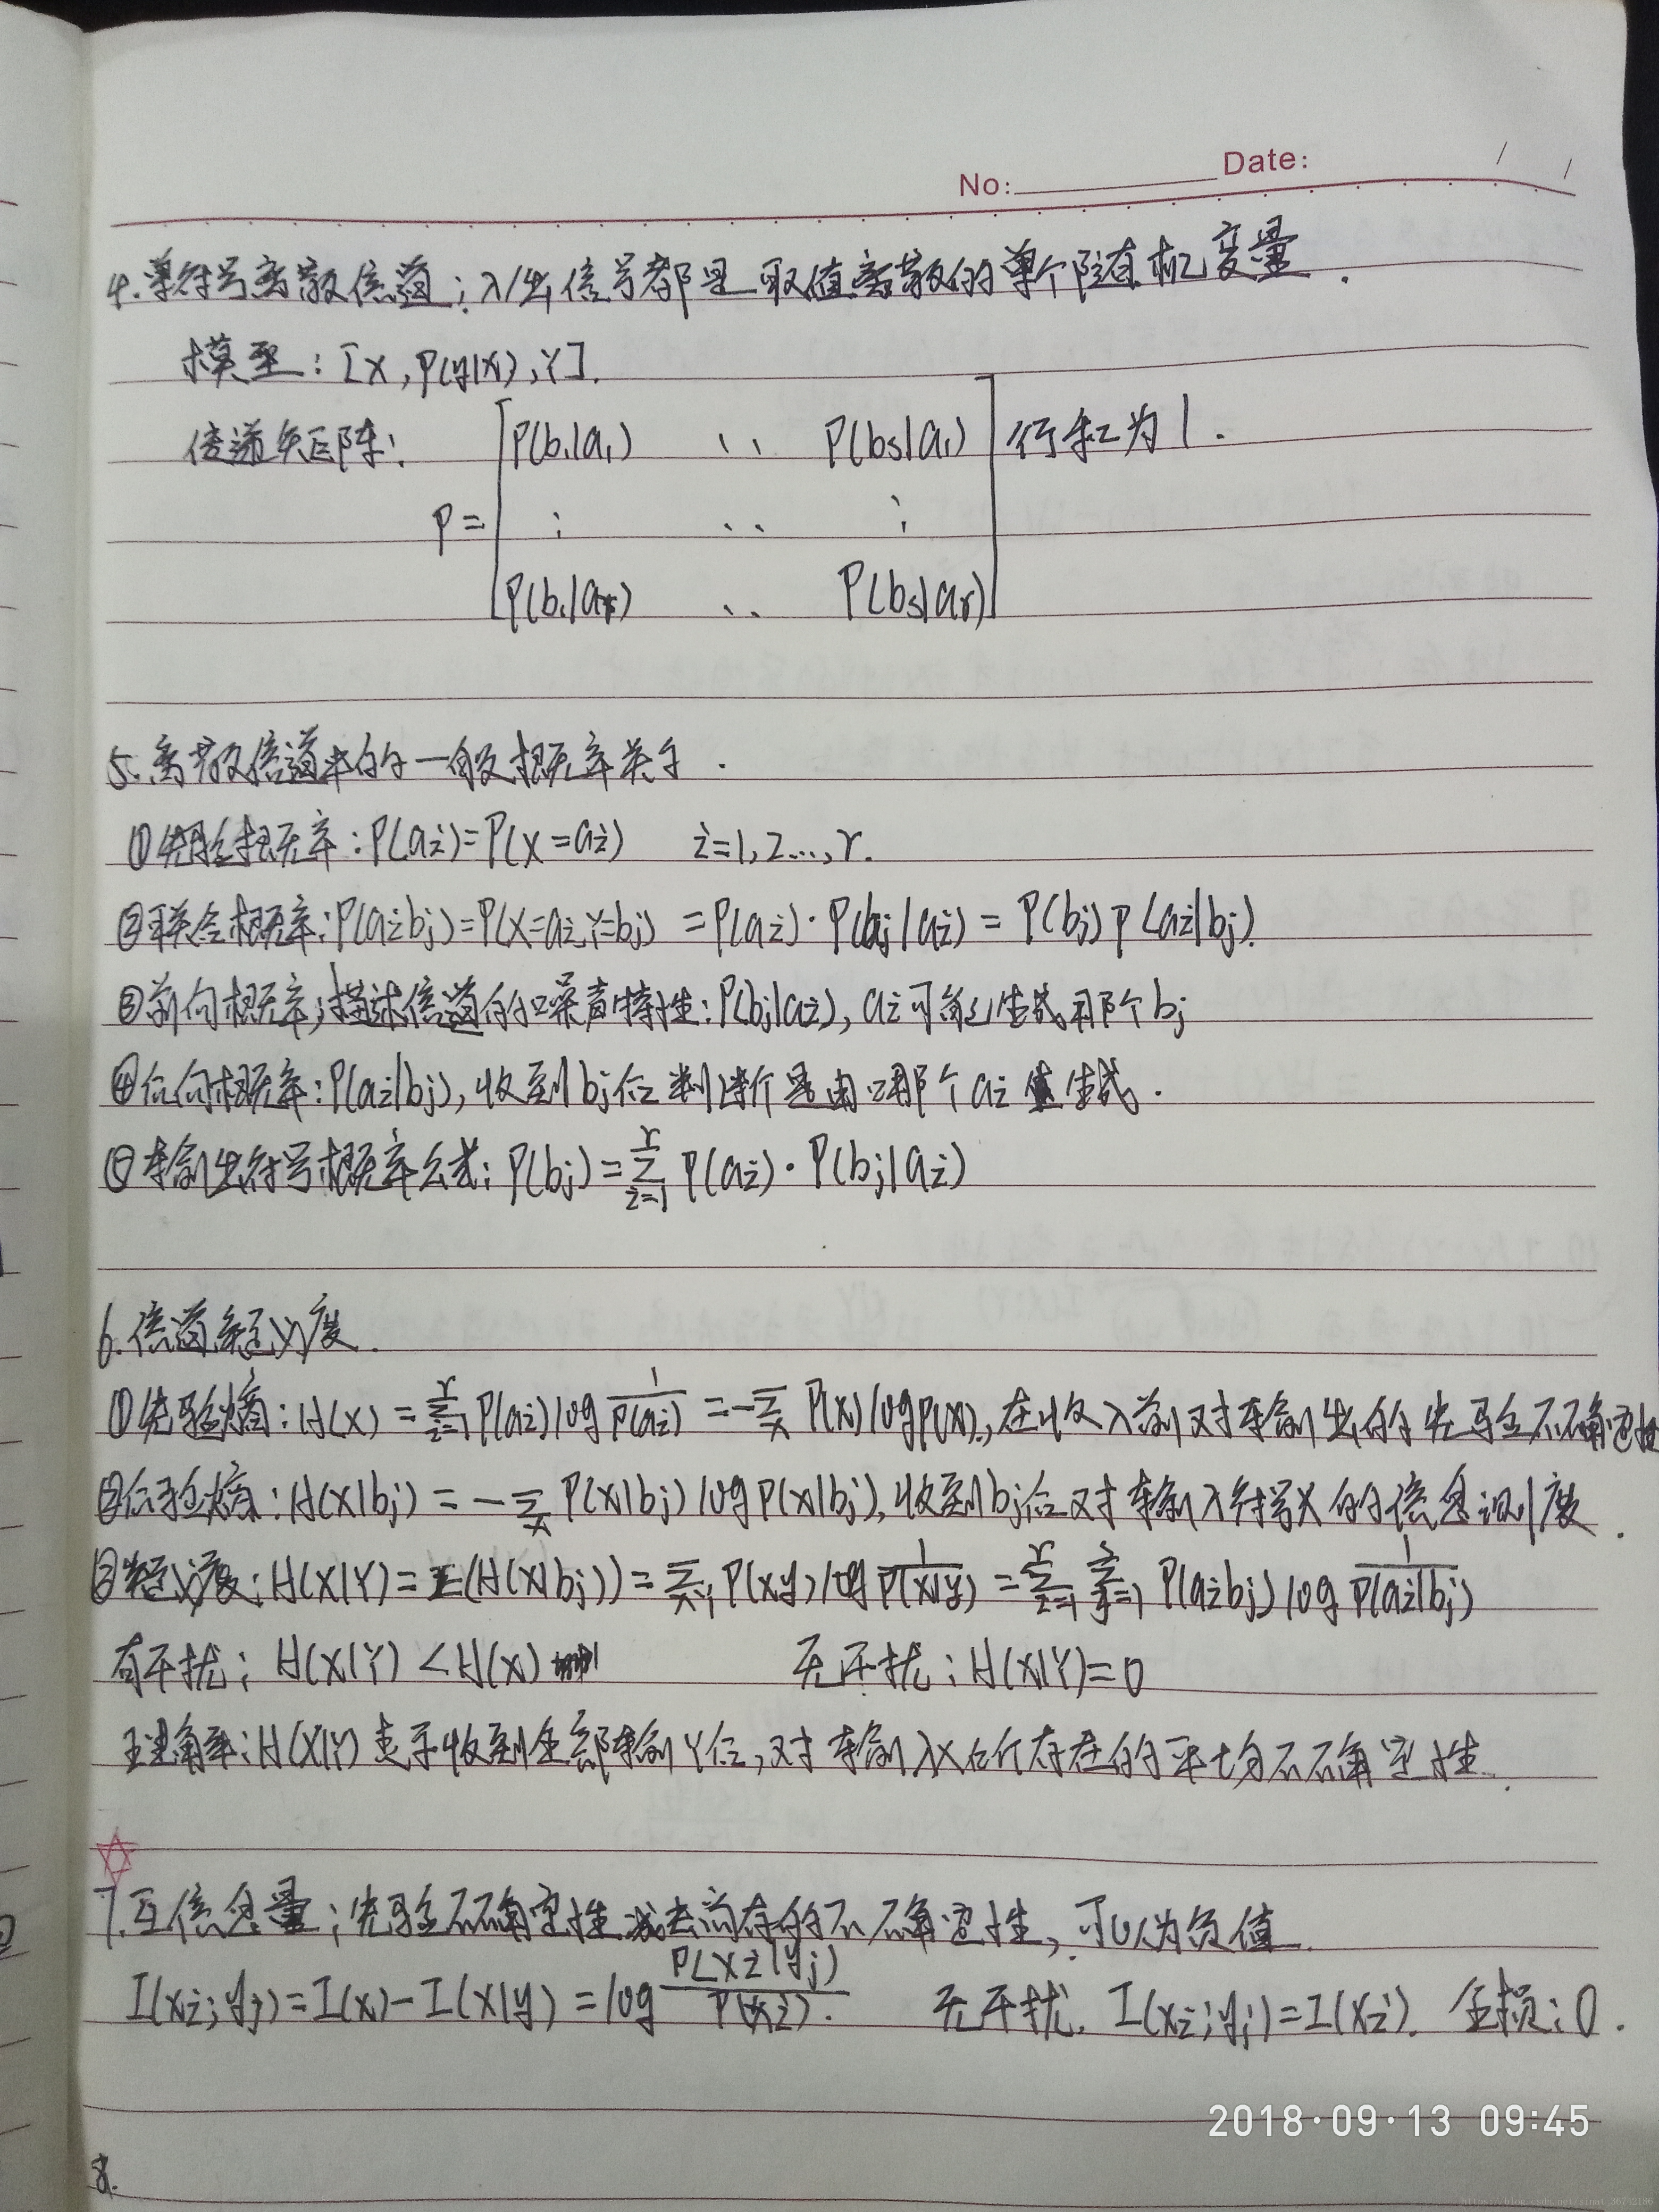 No: Date:
4.单符号离散信道:入/出信号都是取值离散的单个随机变量.
模型:[X,P(y|x),Y].
传递矩阵: P(b₁|a₁) ‥ P(bs|a₁) 行和为1.
P= ⋮ ‥ ⋮
P(b₁|ar) ‥ P(bs|ar)
5.离散信道中的一般概率关系.
①先验概率:P(ai)=P(X=ai) i=1,2…,r.
②联合概率:P(aibj)=P(X=ai,Y=bj) =P(ai)·P(bj|ai)=P(bj)P(ai|bj).
③前向概率;描述信道的噪声特性:P(bj|ai),ai可能生成哪个bj
④后向概率:P(ai|bj),收到bj后判断是由哪个ai生成.
⑤输出符号概率公式:P(bj)=∑_{i=1}^{r} P(ai)·P(bj|ai)
6.信道疑义度.
①先验熵:H(X)=∑_{i=1}^{r}P(ai)log 1/P(ai) =-∑_x P(x)logP(x),在收入前对输出的先验不确定性
②后验熵:H(X|bj)=-∑_x P(x|bj)logP(x|bj),收到bj后对输入符号X的信息测度.
③疑义度:H(X|Y)=E(H(X|bj))=∑_{x·y}P(xy)log 1/P(x|y) =∑_{i=1}^{r}∑_{j=1}^{s} P(aibj)log 1/P(ai|bj)
有干扰;H(X|Y)<H(X) 无干扰:H(X|Y)=0
理解:H(X|Y)表示收到全部输Y后,对输入X所存在的平均不确定性.
7.互信息量;先验不确定性减去尚存的不确定性,可以为负值.
I(xi;yj)=I(x)-I(x|y)=log P(xi|yj)/P(xi). 无干扰.I(xi;yj)=I(xi). 全损:0.
2018·09·13 09:45
8.